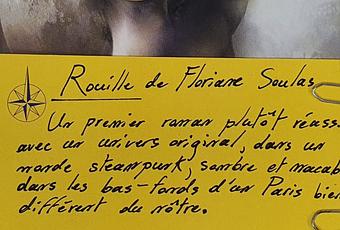 Rouille de Floriane Soulas
Un premier roman plutôt réuss
avec un univers original, dans un
monde steampunk, sombre et macab
dans les bas-fonds d'un Paris bien
différent du nôtre.